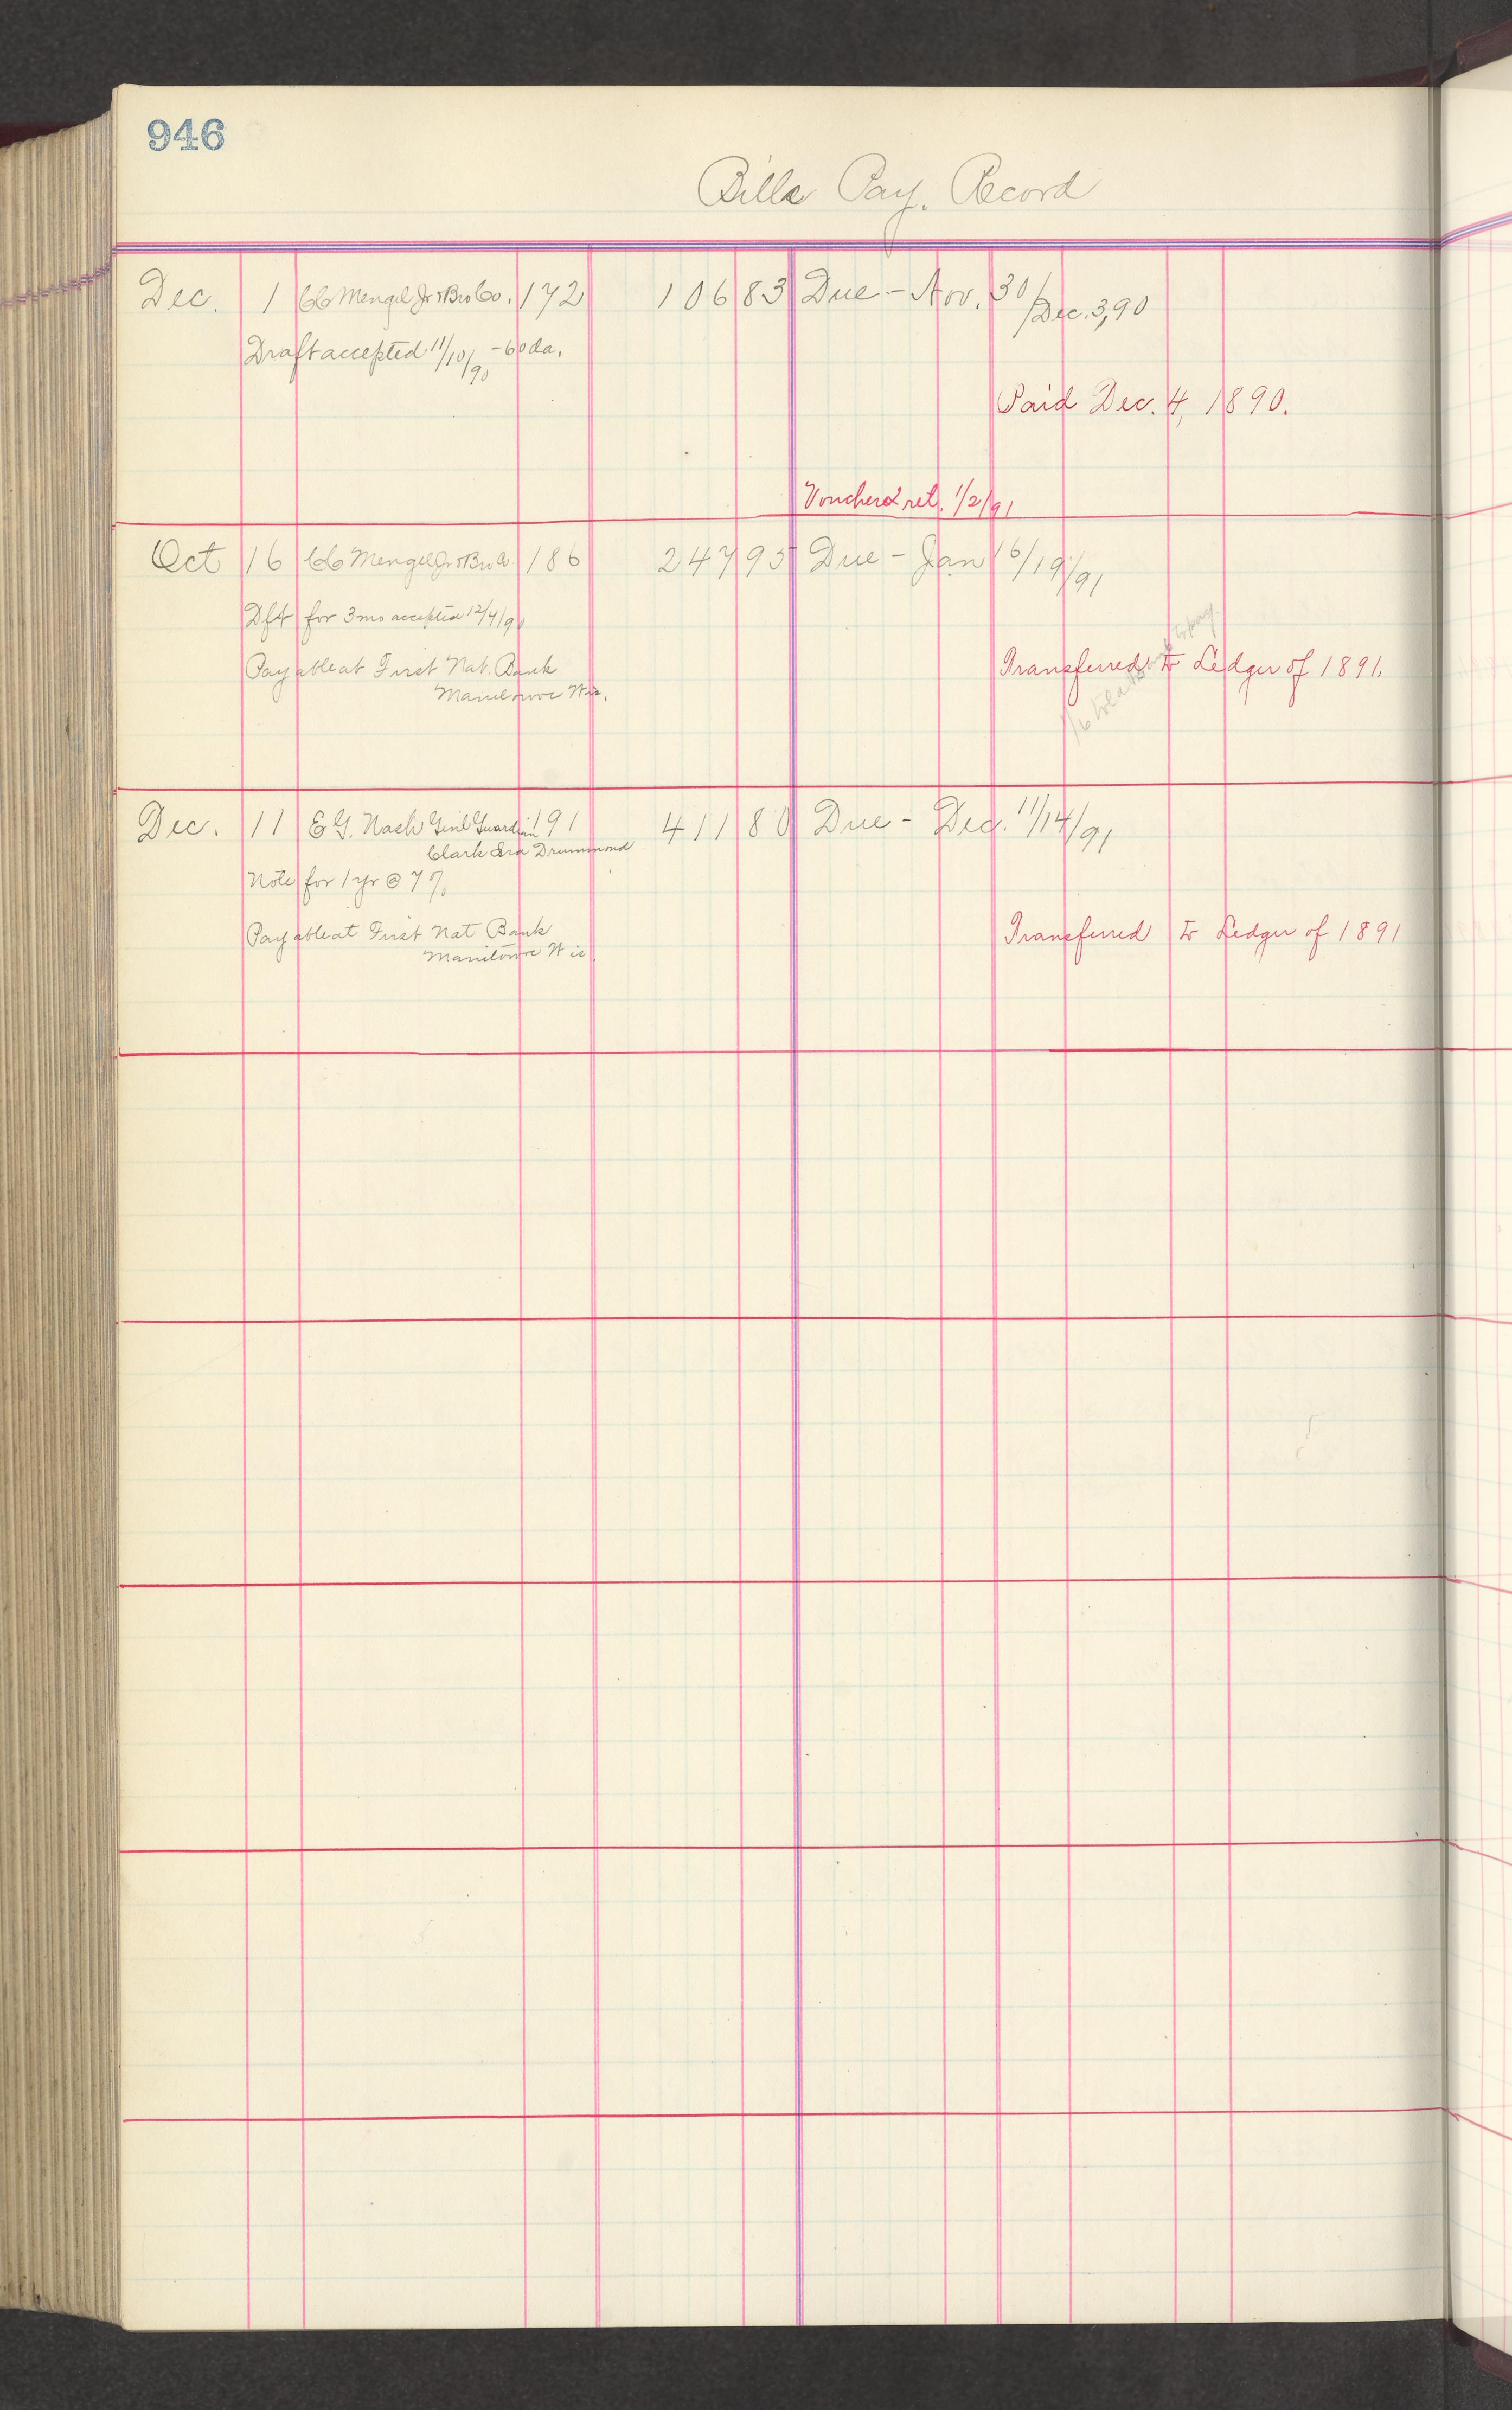 946
Bills Pay. Record
Dec. 1 CC Mengel Jr & Bro Co. 172 106 83 Due - Nov. 30/Dec. 3, 90
Draft accepted 11/10/90 - 60 da.
Paid Dec. 4, 1890.
Voucher ret. 1/2/91
Oct 16 CC Mengel Jr & Bro Co 186 247 95 Due - Jan 16/19/91
Dft for 3 mo accepted 12/4/90
Payable at First Nat. Bank
Manitowoc Wis.
Transferred to Ledger of 1891.
to pay
Dec. 11 E G. Nash Genl Guardian 191 411 80 Due - Dec. 11/14/91
Clark Drummond
Note for 1 yr @ 7%
Payable at First Nat Bank
Manitowoc Wis
Transferred to Ledger of 1891